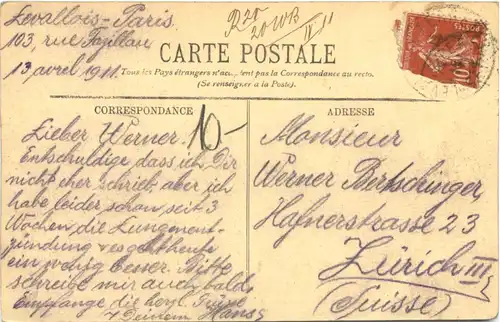 Levallois-Paris
103, rue Fazillau
13 avril 1911
R20
20WB
IV 11
CARTE POSTALE
Tous les Pays étrangers n'acceptent pas la Correspondance au recto.
(Se renseigner à la Poste).
CORRESPONDANCE
10-
Lieber Werner.
Entschuldige dass ich Dir
nicht eher schrieb, aber ich
habe leider schon seit 3
Wochen die Lungenent-
zündung & es geht heute
ein wenig besser. Bitte
schreibe mir auch bald.
Empfange die herzl. Grüsse
v Deinem Hans
ADRESSE
Monsieur
Werner Bertschinger
Hafnerstrasse 23
Zürich III
(Suisse)
10